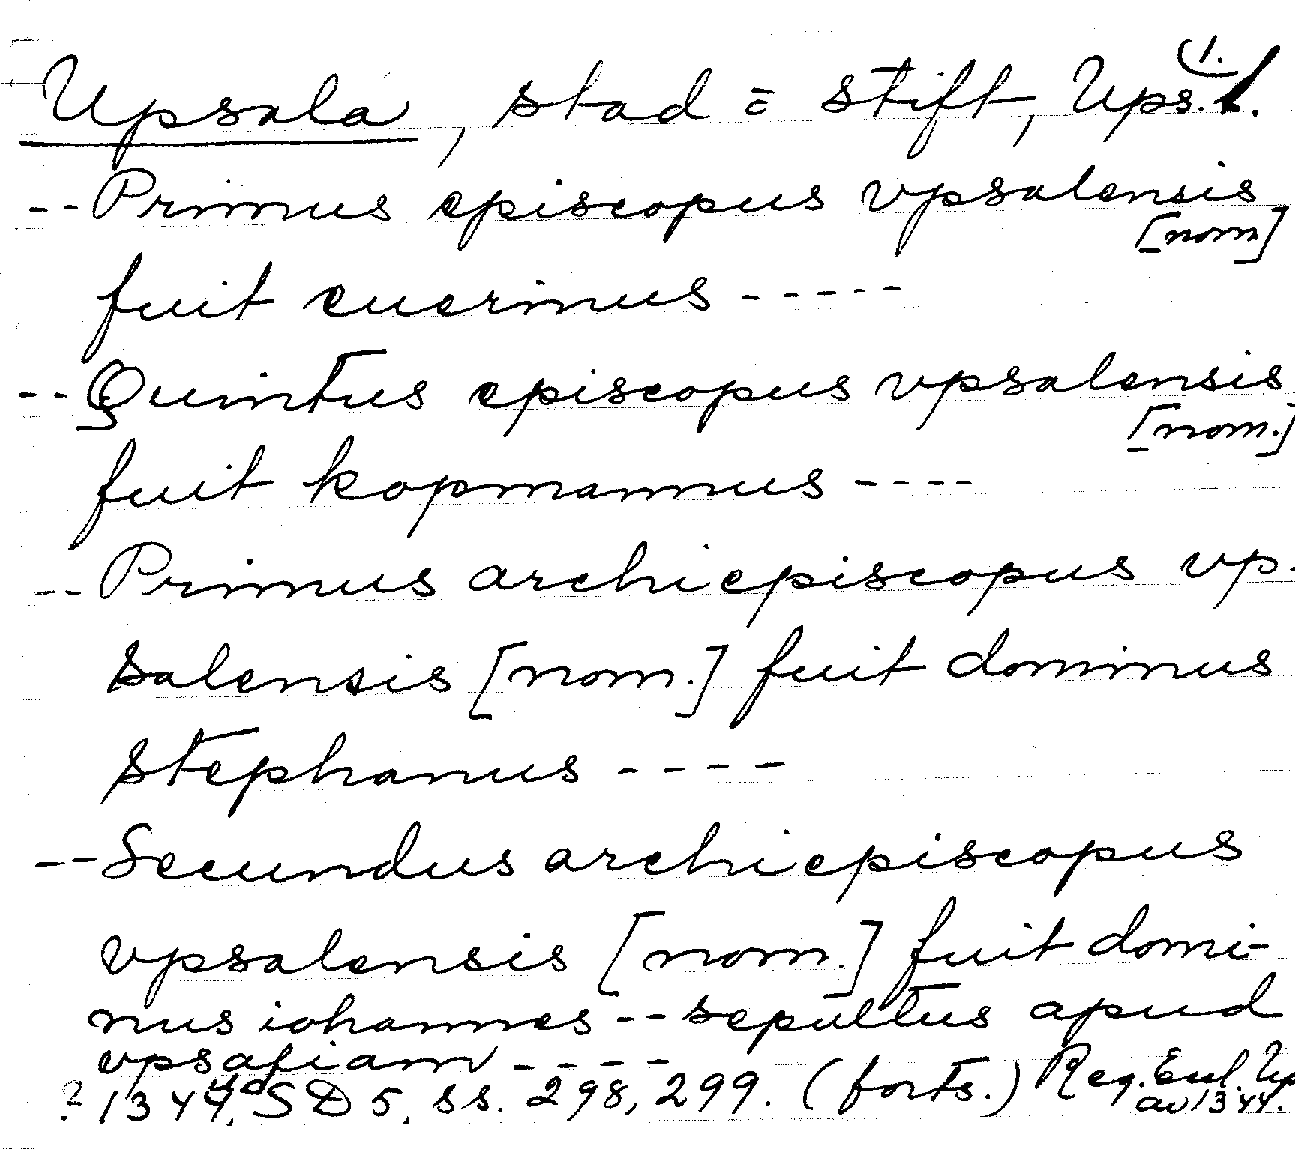 (1.
Upsala, stad = stift, Ups. l.
-- Primus episcopus vpsalensis
[nom]
fuit euerinus -----
-- Quintus episcopus vpsalensis
[nom.]
fuit kopmannus ----
-- Primus archiepiscopus vp-
salensis [nom.] fuit dominus
stephanus ----
-- Secundus archiepiscopus
vpsalensis [nom.] fuit domi-
nus iohannes -- sepultus apud
----
? 1344, SD 5, ss. 298, 299. (forts.) Reg. Eccl. Up
av 1344.